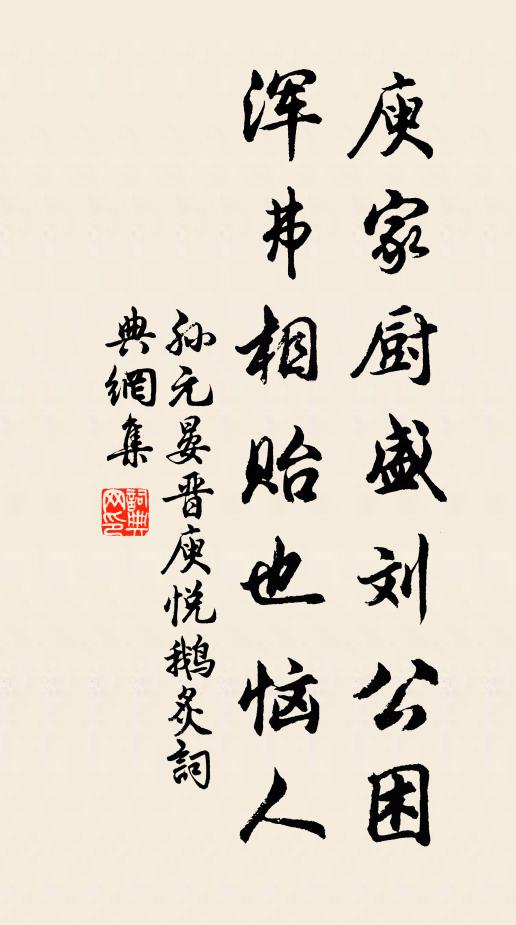 庾家厨盛刘公困
浑弗相贻也恼人
孙元晏晋庾悦鹅炙詞
典網集
詞典网印